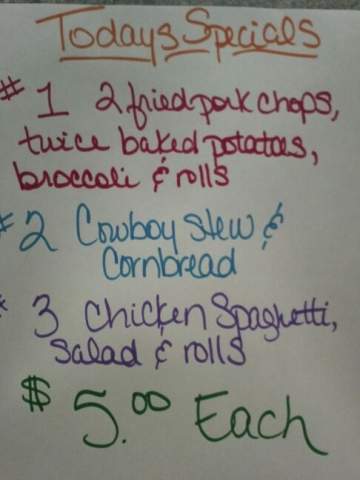 Todays Specials
# 1 2 fried pork chops,
twice baked potatoes,
broccoli & rolls
# 2 Cowboy Stew &
Cornbread
# 3 Chicken Spaghetti,
Salad & rolls
$ 5.00 Each